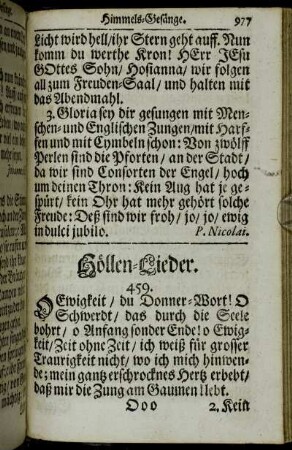 Himmels-Gesänge. 977
Licht wird hell/ihr Stern geht auff. Nun
komm du werthe Kron! HErr JEsu
GOttes Sohn/ Hosianna/ wir folgen
all zum Freuden-Saal/ und halten mit
das Abendmahl.
3. Gloria sey dir gesungen mit Men-
schen- und Englischen Zungen/mit Harf-
fen und mit Cymbeln schon: Von zwölff
Perlen sind die Pforten/ an der Stadt/
da wir sind Consorten der Engel/ hoch
um deinen Thron: Kein Aug hat je ge-
spürt/ kein Ohr hat mehr gehört solche
Freude: Deß sind wir froh/ jo/ jo/ ewig
in dulci jubilo. P. Nicolai.
Höllen-Lieder.
459.
O Ewigkeit/ du Donner-Wort! O
Schwerdt/ das durch die Seele
bohrt/ o Anfang sonder Ende! o Ewig-
keit/ Zeit ohne Zeit/ ich weiß für grosser
Traurigkeit nicht/ wo ich mich hinwen-
de; mein gantz erschrocknes Hertz erbebt/
daß mir die Zung am Gaumen klebt.
Ooo 2. Kein